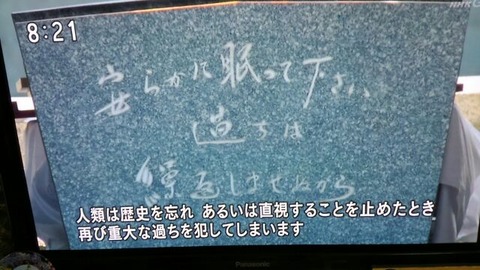 8:21
NHK G
安らかに眠って下さい
過ちは
繰返しませぬから
人類は歴史を忘れ あるいは直視することを止めたとき
再び重大な過ちを犯してしまいます
Panasonic